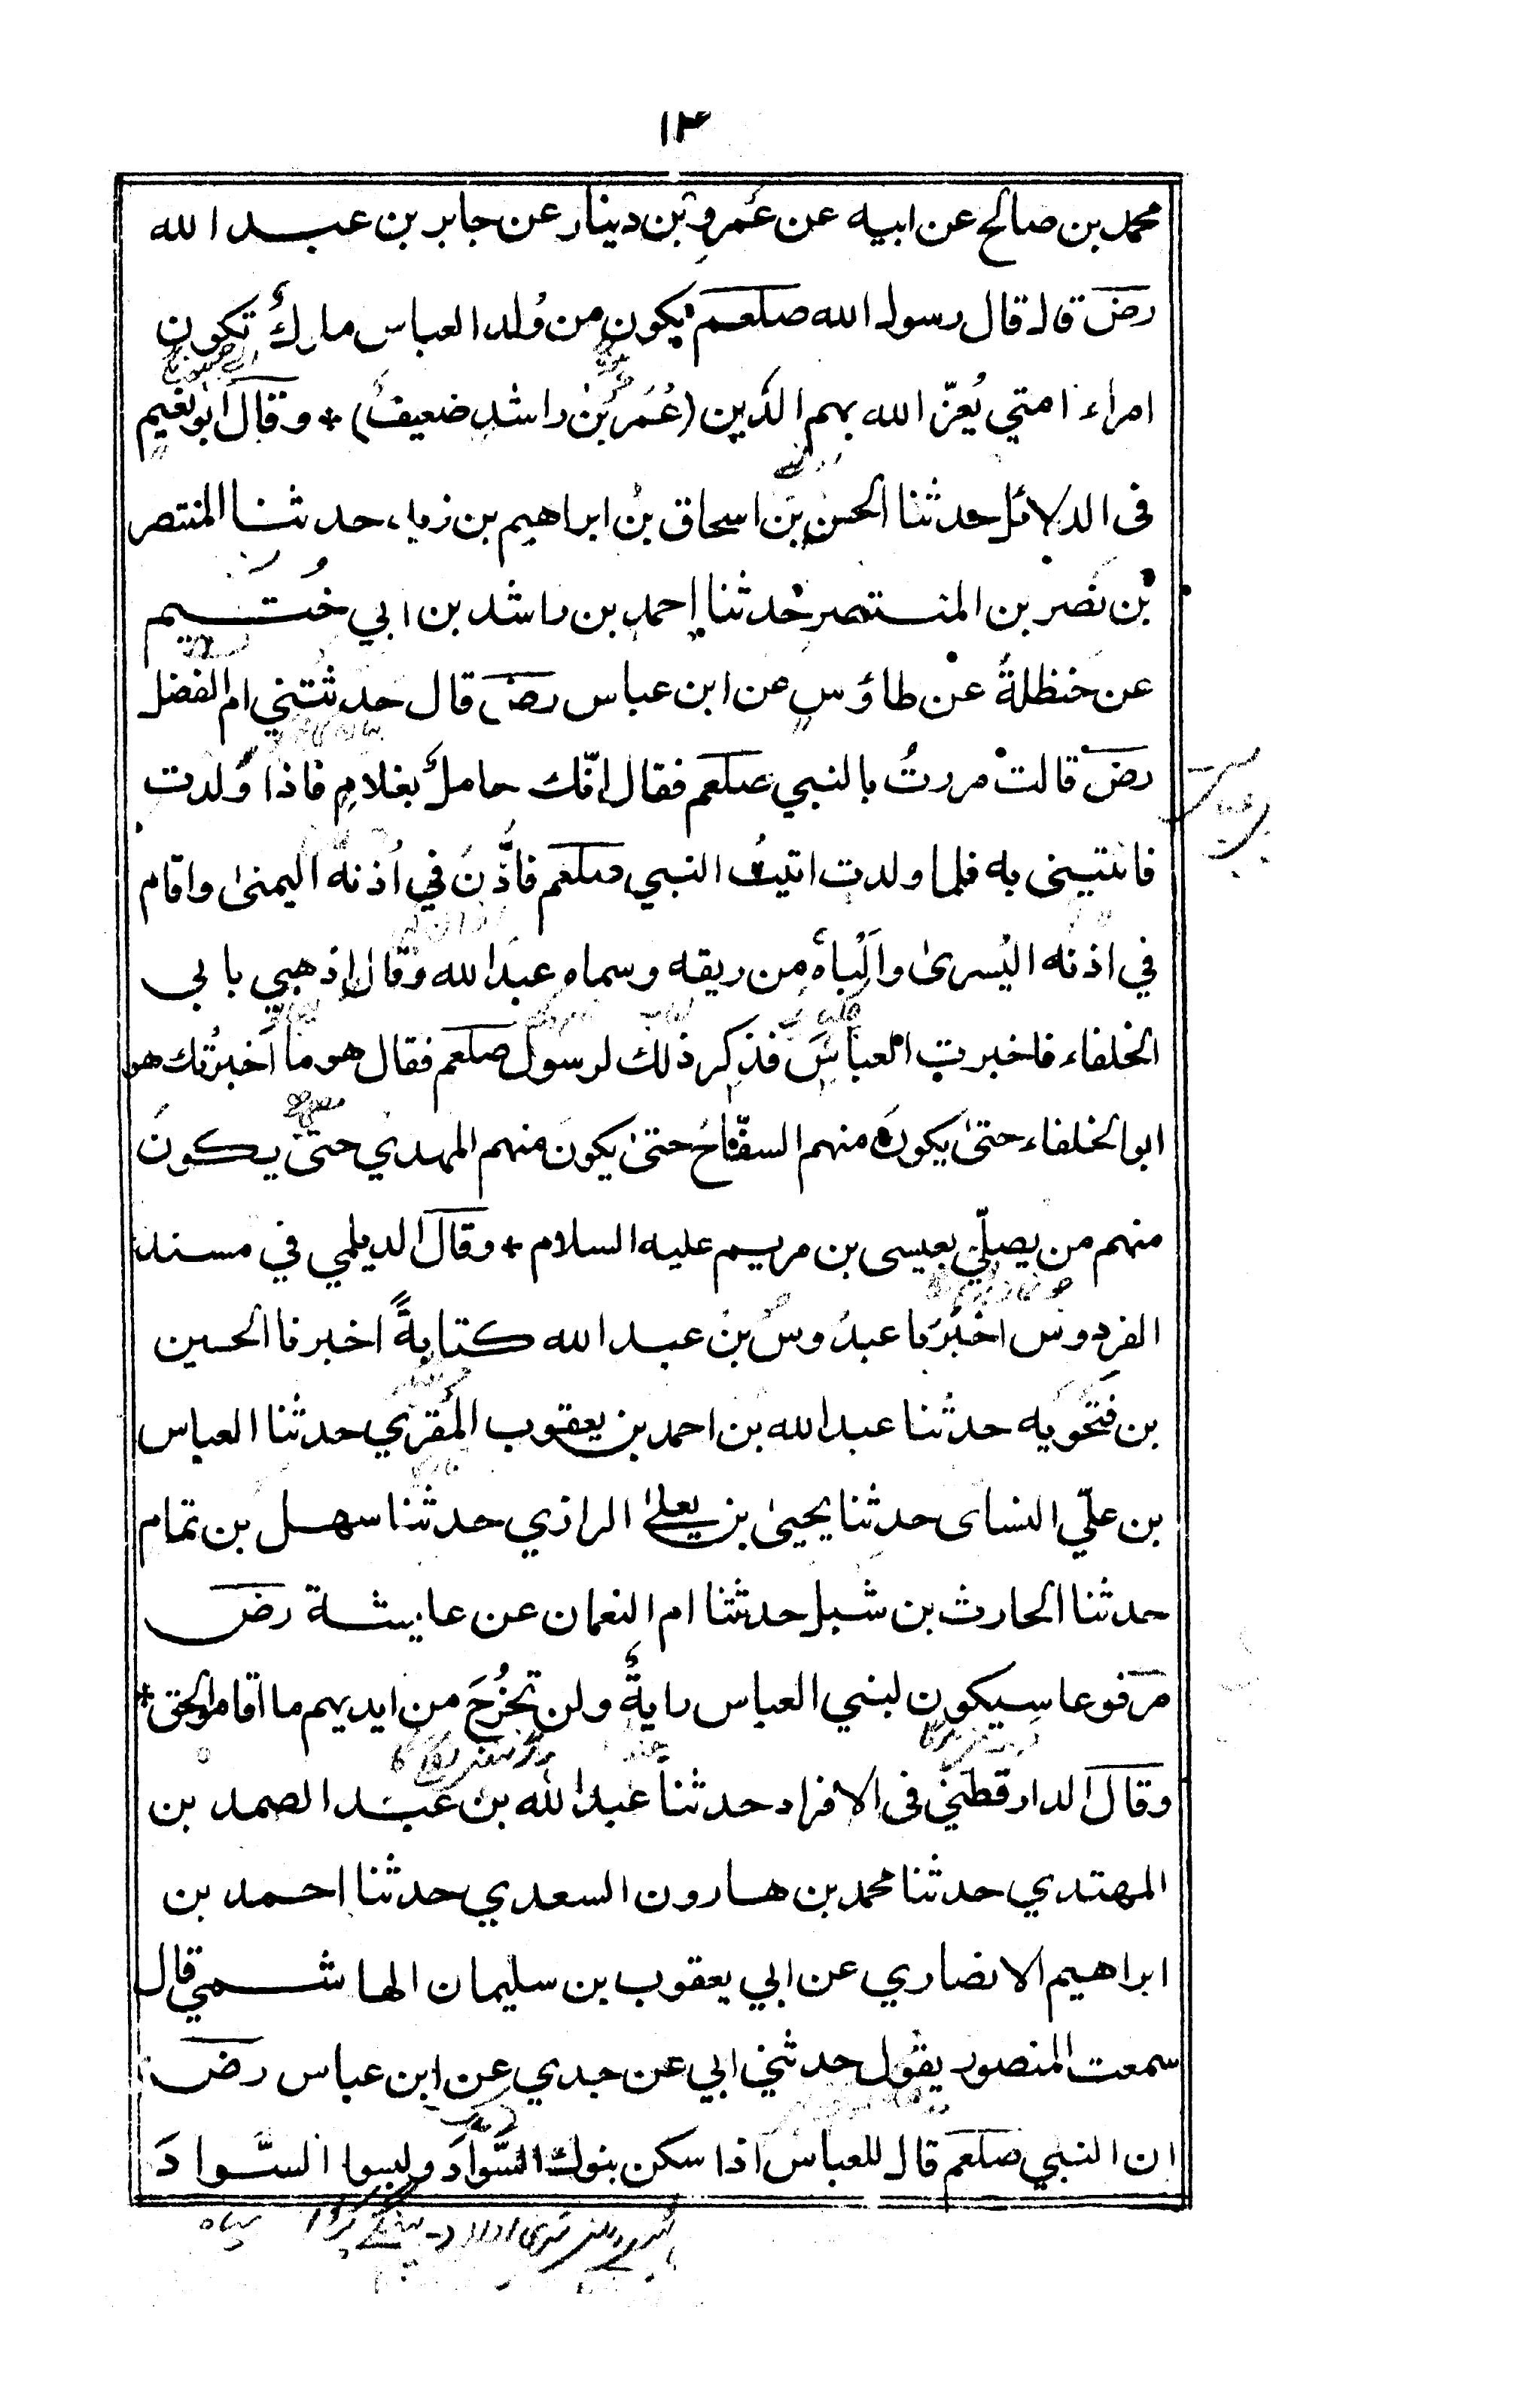 ١٤
محمد بن صالح عن ابيه عن عَمرو بن دينار عن جابر بن عبد الله
رض قال قال رسول الله صلعم يكون من وُلد العباس ملوكٌ تكون
امراء امتي يُعزّ الله بهم الدّين (عُمَر بن راشد ضعيف) * وقال ابو نعيم
فى الدلائل حدثنا الحسن بن اسحاق بن ابراهيم بن زياد حدثنا المنتصر
بن نصر بن المنتصر حدثنا احمد بن راشد بن ابي خُثَيم
عن حنظلة عن طاؤس عن ابن عباس رض قال حدثتني ام الفضل
رض قالت مررتُ بالنبي صلعم فقال انّك حاملٌ بغلامٍ فاذا وُلدت
فائتينى به فلما ولدت اتيتُ النبي صلعم فاَذَّنَ في اُذنه اليمنىٰ واقام
في اذنه اليُسرىٰ واَلْباهٗ من ريقه وسماه عبدَ الله وقال اذهبي بابى
الخلفاء فاخبرت العباسَ فذكر ذلك لرسول صلعم فقال هو ما اَخبرتُك هو
ابو الخلفاء حتىٰ يكونَ منهم السفّاحُ حتىٰ يكونَ منهم المهدي حتىٰ يكونَ
منهم من يصلّي بعيسى بن مريم عليه السلام * وقال الديلمي في مسند
الفردوس اخبرَنا عبدُوس بن عبد الله كتابةً اخبرنا الحسين
بن فَتحُويه حدثنا عبد الله بن احمد بن يعقوب المُقري حدثنا العباس
بن علّي النساى حدثنا يحيىٰ بن يعلىٰ الرازي حدثنا سهل بن تمام
حدثنا الحارث بن شبل حدثتنا ام النعمان عن عايشة رض
مرفوعا سيكون لبني العباس رايةٌ ولن تخرُجَ من ايديهم ما اقاموا الحق *
وقال الدارقطني فى الافراد حدثنا عبد الله بن عبد الصمد بن
المهتدي حدثنا محمد بن هارون السعدي حدثنا احمد بن
ابراهيم الانصاري عن ابي يعقوب بن سليمان الهاشمي قال
سمعت المنصور يقول حدثني ابي عن جدي عن ابن عباس رض
ان النبي صلعم قال للعباس اذا سكن بنوك السَّوادَ ولبسوا السَّوادَ